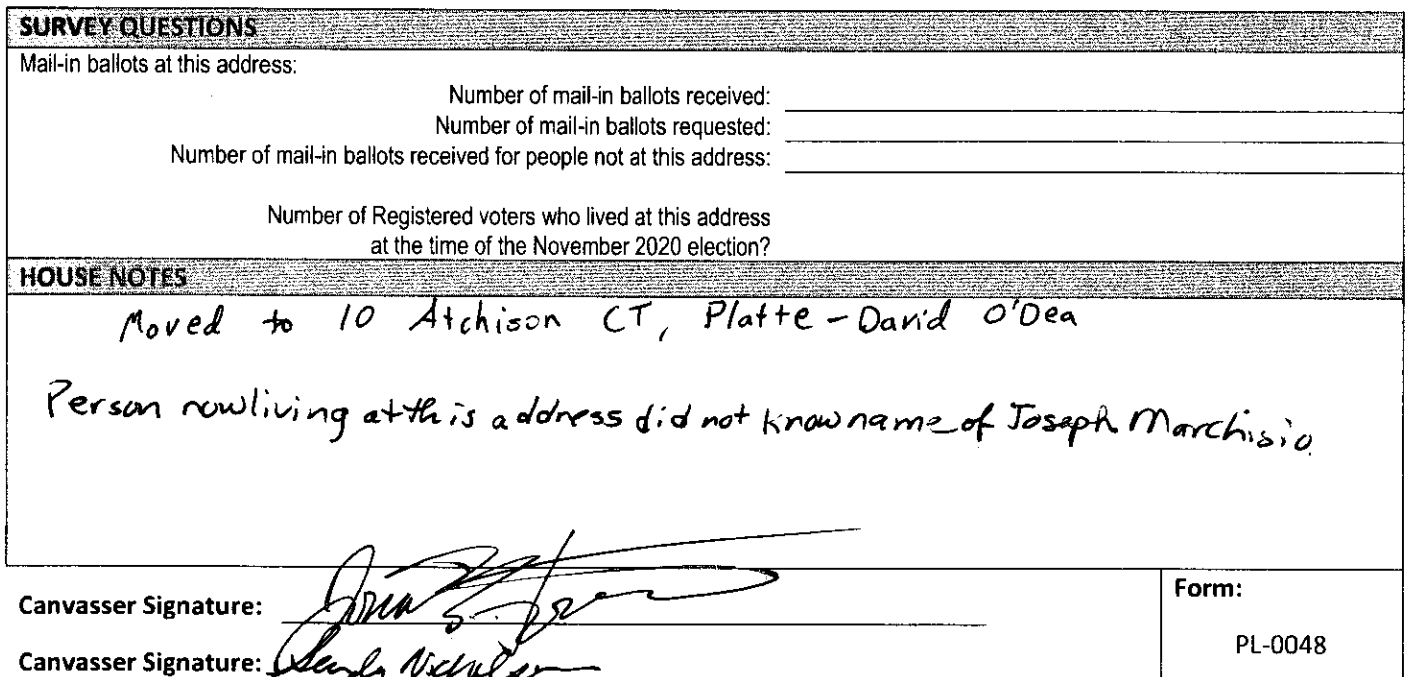 SURVEY QUESTIONS
Mail-in ballots at this address:
Number of mail-in ballots received:
Number of mail-in ballots requested:
Number of mail-in ballots received for people not at this address:
Number of Registered voters who lived at this address
at the time of the November 2020 election?
HOUSE NOTES
Moved to 10 Atchison CT, Platte - David O'Dea
Person now living at this address did not know name of Joseph Marchisio
Canvasser Signature:
Form:
PL-0048
Canvasser Signature: